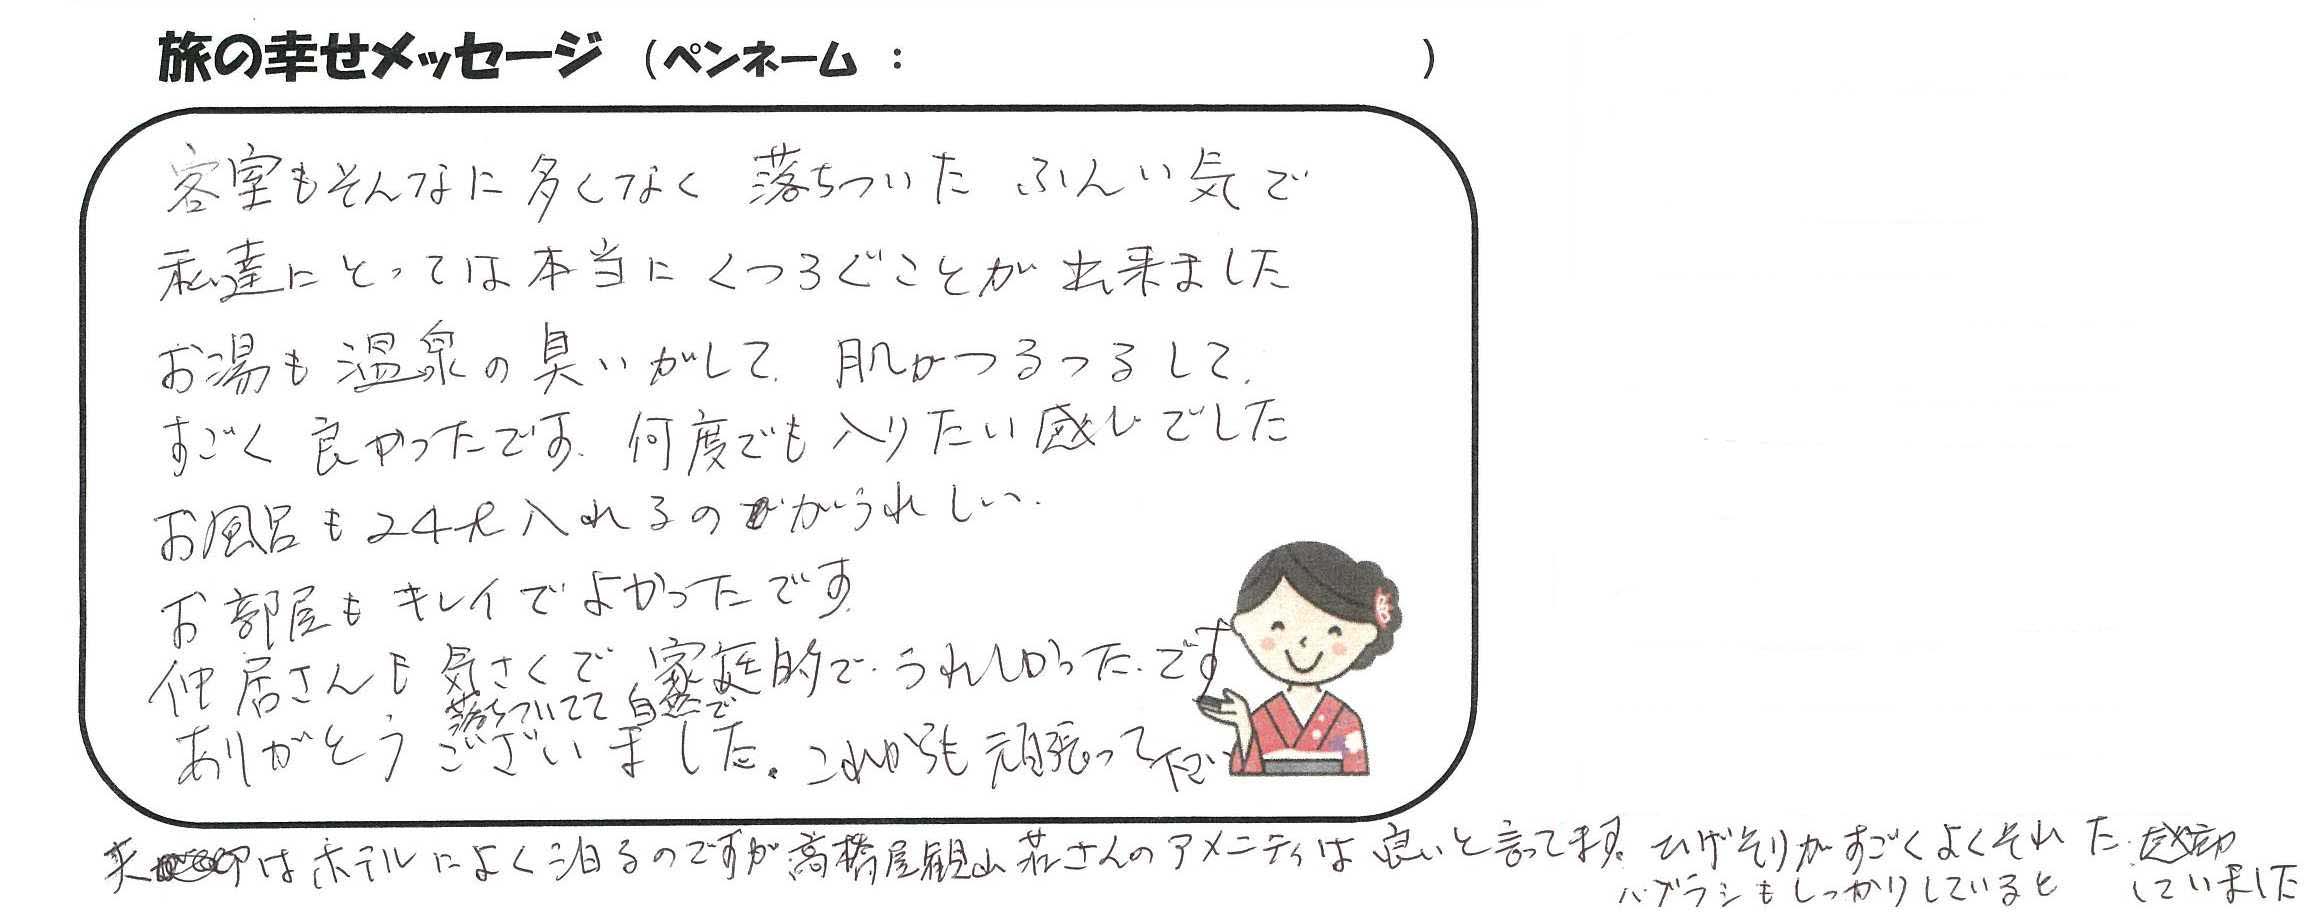 旅の幸せメッセージ （ペンネーム ： ）
客室もそんなに多くなく 落ちついた ふんい気で
私達にとっては本当に くつろぐことが 出来ました
お湯も 温泉の 臭いがして、肌がつるつるして、
すごく 良かったです。何度でも 入りたい 感じでした
お風呂も 24h 入れるのがうれしい。
お部屋も キレイで よかったです。
仲居さんも 気さくで 家庭的で、うれしかった、です
落ちついてて 自然で
ありがとう ございました。これからも 頑張って下さい
夫 は ホテルによく泊るのですが 高橋屋観山荘さんの アメニティは 良いと言ってます。ひげそりが すごく よく それた、感動
ハブラシもしっかりしていると していました